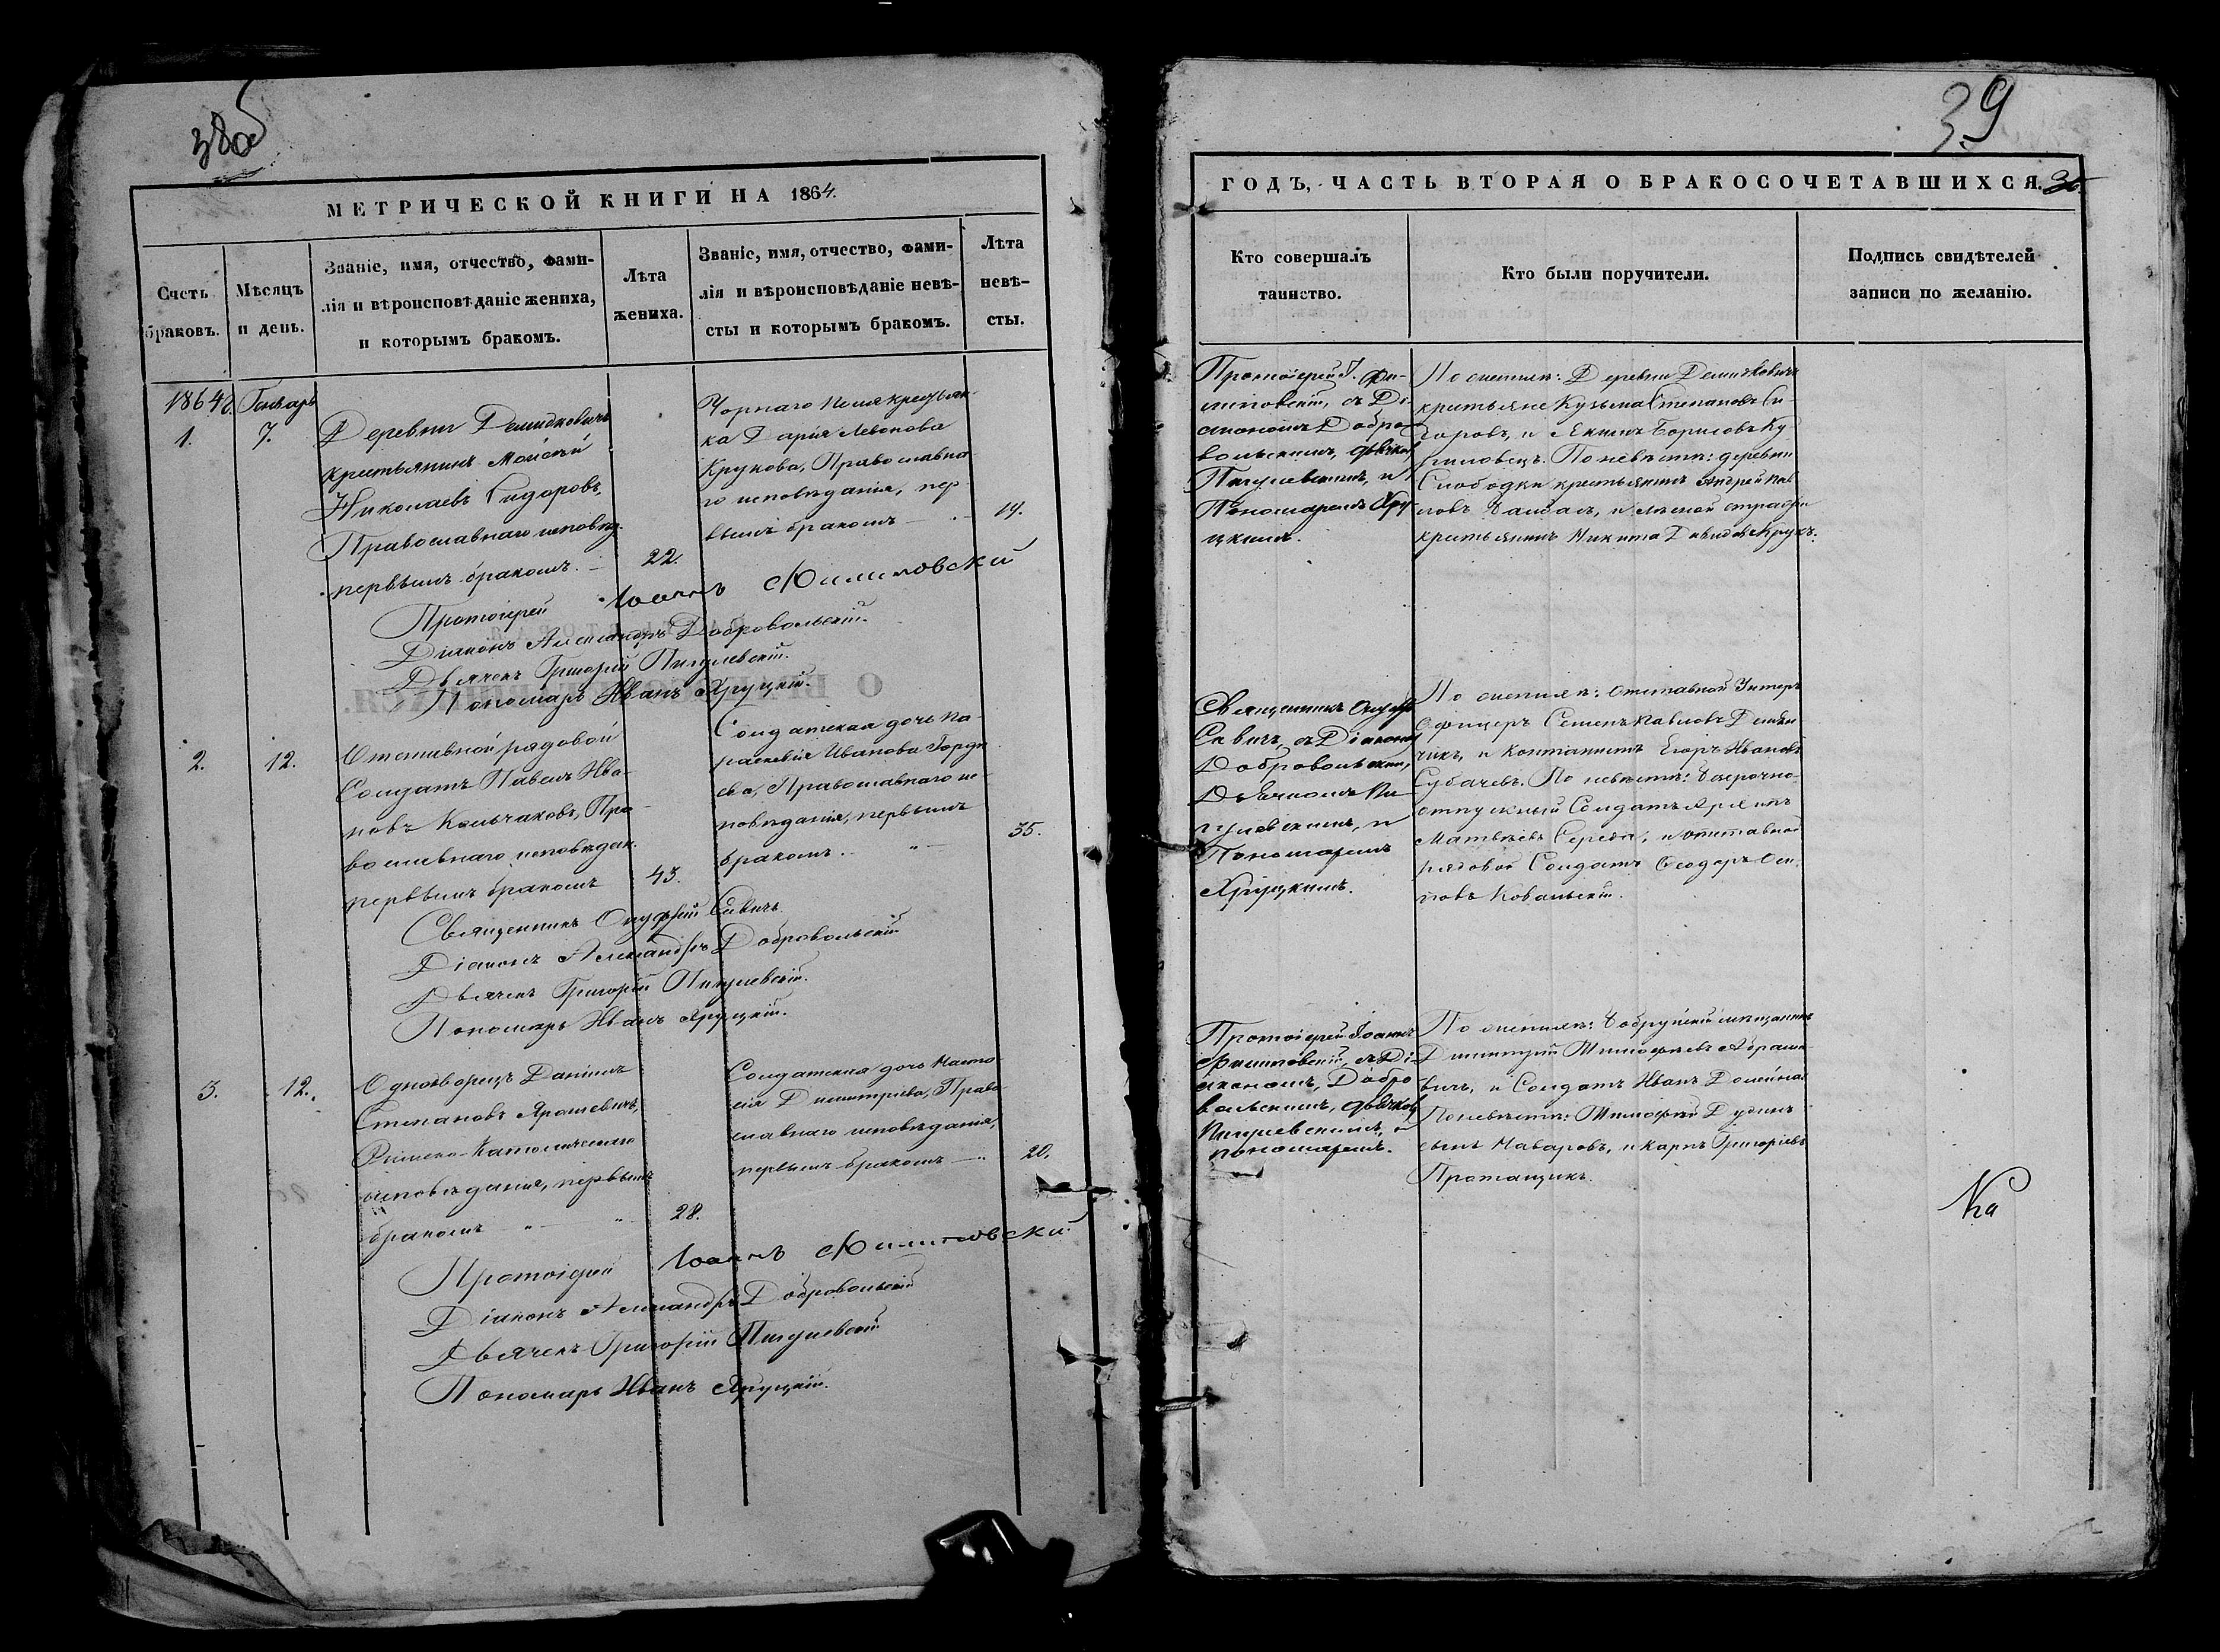 38об
МЕТРИЧЕСКОЙ КНИГИ НА 1864.
Счетъ браковъ.
Мѣсяцъ и день.
Званіе, имя, отчество, фами-
лія и вѣроисповѣданіе жениха,
и которымъ бракомъ.
Лѣта
жениха.
Званіе, имя, отчество, фами-
лія и вѣроисповѣданіе невѣ-
сты и которымъ бракомъ.
Лѣта
невѣ-
сты.
1864
Генварь
1.
7.
Деревни Демидковичъ
крестьянинъ Мойсей
Николаевъ Сидоровъ,
Православнаго исповѣд.
первымъ бракомъ.
22.
крестьян-
ка Дарія Левонова
Крукова, Православна-
го исповѣданія, пер-
вымъ бракомъ
19.
Протоіерей Іоаннъ Филиповскій
Діаконъ Александръ Добровольскій.
Дьячекъ Григорій Пигулевскій.
Пономарь Иванъ Хруцкій.
2.
12.
Отставной рядовой
Солдатъ Павелъ Ива-
новъ Кольчаковъ, Пра-
вославнаго исповѣдан.
первымъ бракомъ
43.
Солдатская дочь Па-
раскевія Иванова Горде-
ева, Православнаго ис-
повѣданія, первымъ
бракомъ.
35.
Священникъ Онуфрій Савичъ.
Діаконъ Александръ Добровольскій
Дьячекъ Григорій Пигулевскій.
Пономарь Иванъ Хруцкій.
3.
12.
Однодворецъ Даніилъ
Степановъ Ярошевичъ,
Римско-Католическаго
исповѣданія, первымъ
бракомъ
28.
Солдатская дочь Наста-
сія Димитріева, Право-
славнаго исповѣданія,
первымъ бракомъ
20.
Протоіерей Іоаннъ Филиповскій
Діаконъ Александръ Добровольскій
Дьячекъ Григорій Пигулевскій
Пономарь Иванъ Хруцкій.
39
ГОДЪ, ЧАСТЬ ВТОРАЯ О БРАКОСОЧЕТАВШИХСЯ.
Кто совершалъ
таинство.
Кто были поручители.
Подпись свидѣтелей
записи по желанію.
Протоіерей І. Фи-
липовскій, съ Ді-
акономъ Добро-
вольскимъ, дьячком
Пигулевскимъ, и
Пономаремъ Хру-
цкимъ.
По женихѣ: Деревни Демидковичъ
крестьяне Кузьма Степановъ Си-
доровъ, и Якимъ Борисовъ Ку-
риловецъ. По невѣстѣ: деревни
Слободки крестьянинъ Андрей Пав-
ловъ и лѣсной стражи
крестьянинъ Никита Давидовъ Крукъ.
Священникъ Онуфр.
Савичъ, съ Діаконом
Добровольским,
Дьячкомъ Пи-
гулевскимъ, и
Пономаремъ
Хруцкимъ.
По женихѣ: отставной Унтеръ
Офицеръ Семенъ Павловъ
и Каптанистъ Егоръ Ивановъ
Субачевъ. По невѣстѣ: безсрочно-
отпускный Солдатъ
Матвѣевъ Середа, и отставной
рядовой Солдатъ Ѳеодоръ Оси-
повъ Ковальскій.
Протоіерей Іоаннъ
Филиповскій, съ Ді-
акономъ, Добро-
вольскимъ, дьячком
Пигулевскимъ, и
пономаремъ.
По женихѣ: Бобруйскій мѣщанинъ
Димитрій Тимофѣевъ Абрамо-
вичъ, и Солдатъ Иванъ
По невѣстѣ: Тимофей
сынъ и Карпъ Григорьевъ
Протащикъ.
На